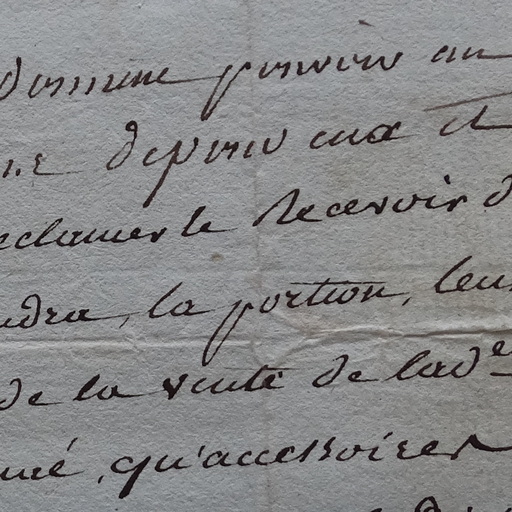 donnene pouvoir au
ne depour eux et
eclamer le Recevoir d
udra, la portion, leur
de la vente de lad.e
mé, qu'accessoires